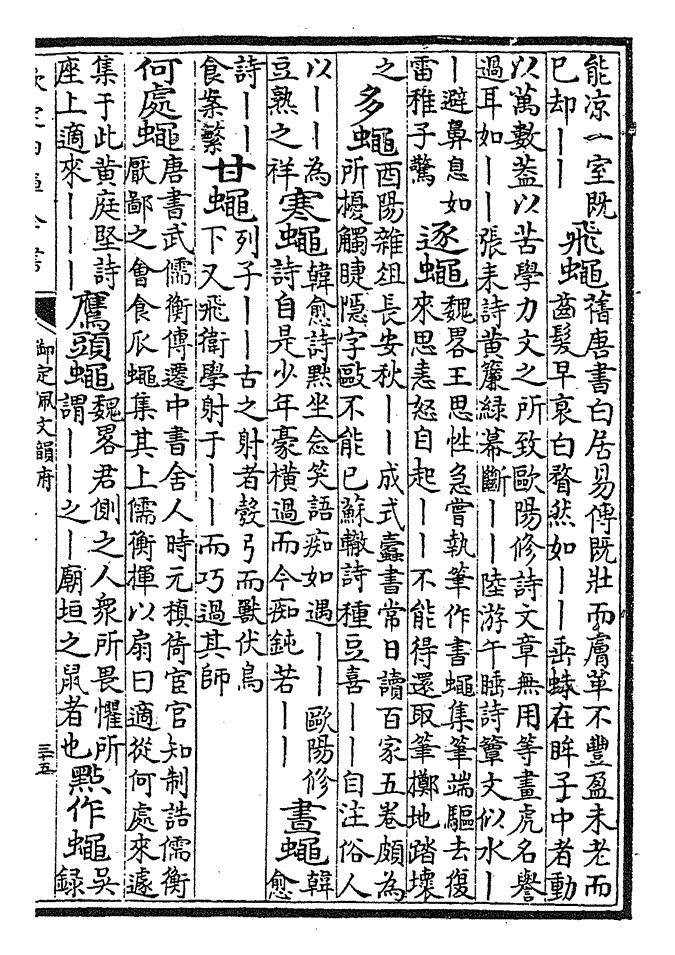 能凉一室既
已却丨丨
飛蠅
舊唐書白居易傳既壯而膚革不豐盈未老而
齒髮早衰白瞀然如丨丨垂蛛在眸子中者動
以萬數葢以苦學力文之所致歐陽修詩文章無用等畫虎名譽
過耳如丨丨張耒詩黄簾緑幕斷丨丨陸游午睡詩簟文似水丨
丨避鼻息如
雷稚子驚
逐蠅
魏畧王思性急嘗執筆作書蠅集筆端驅去復
來思恚怒自起丨丨不能得還取筆擲地踏壞
之
多蠅
酉陽雜俎長安秋丨丨成式蠹書常日讀百家五卷頗為
所擾觸睫隱字敺不能已蘇轍詩種豆喜丨丨自注俗人
以丨丨為
豆熟之祥
寒蠅
韓愈詩黙坐念笑語痴如遇丨丨歐陽修
詩自是少年豪橫過而今痴鈍若丨丨
晝蠅
韓
愈
詩丨丨
食案繁
甘蠅
列子丨丨古之射者彀弓而獸伏鳥
下又飛衛學射于丨丨而巧過其師
何處蠅
唐書武儒衡傳遷中書舍人時元稹倚宦官知制誥儒衡
厭鄙之會食瓜蠅集其上儒衡揮以扇曰適從何處來遽
集于此黄庭堅詩
座上適來丨丨丨
鷹頭蠅
魏畧君側之人衆所畏懼所
謂丨丨之丨廟垣之鼠者也
點作蠅
吳
錄
欽定四庫全書
御定佩文韻府
三十五